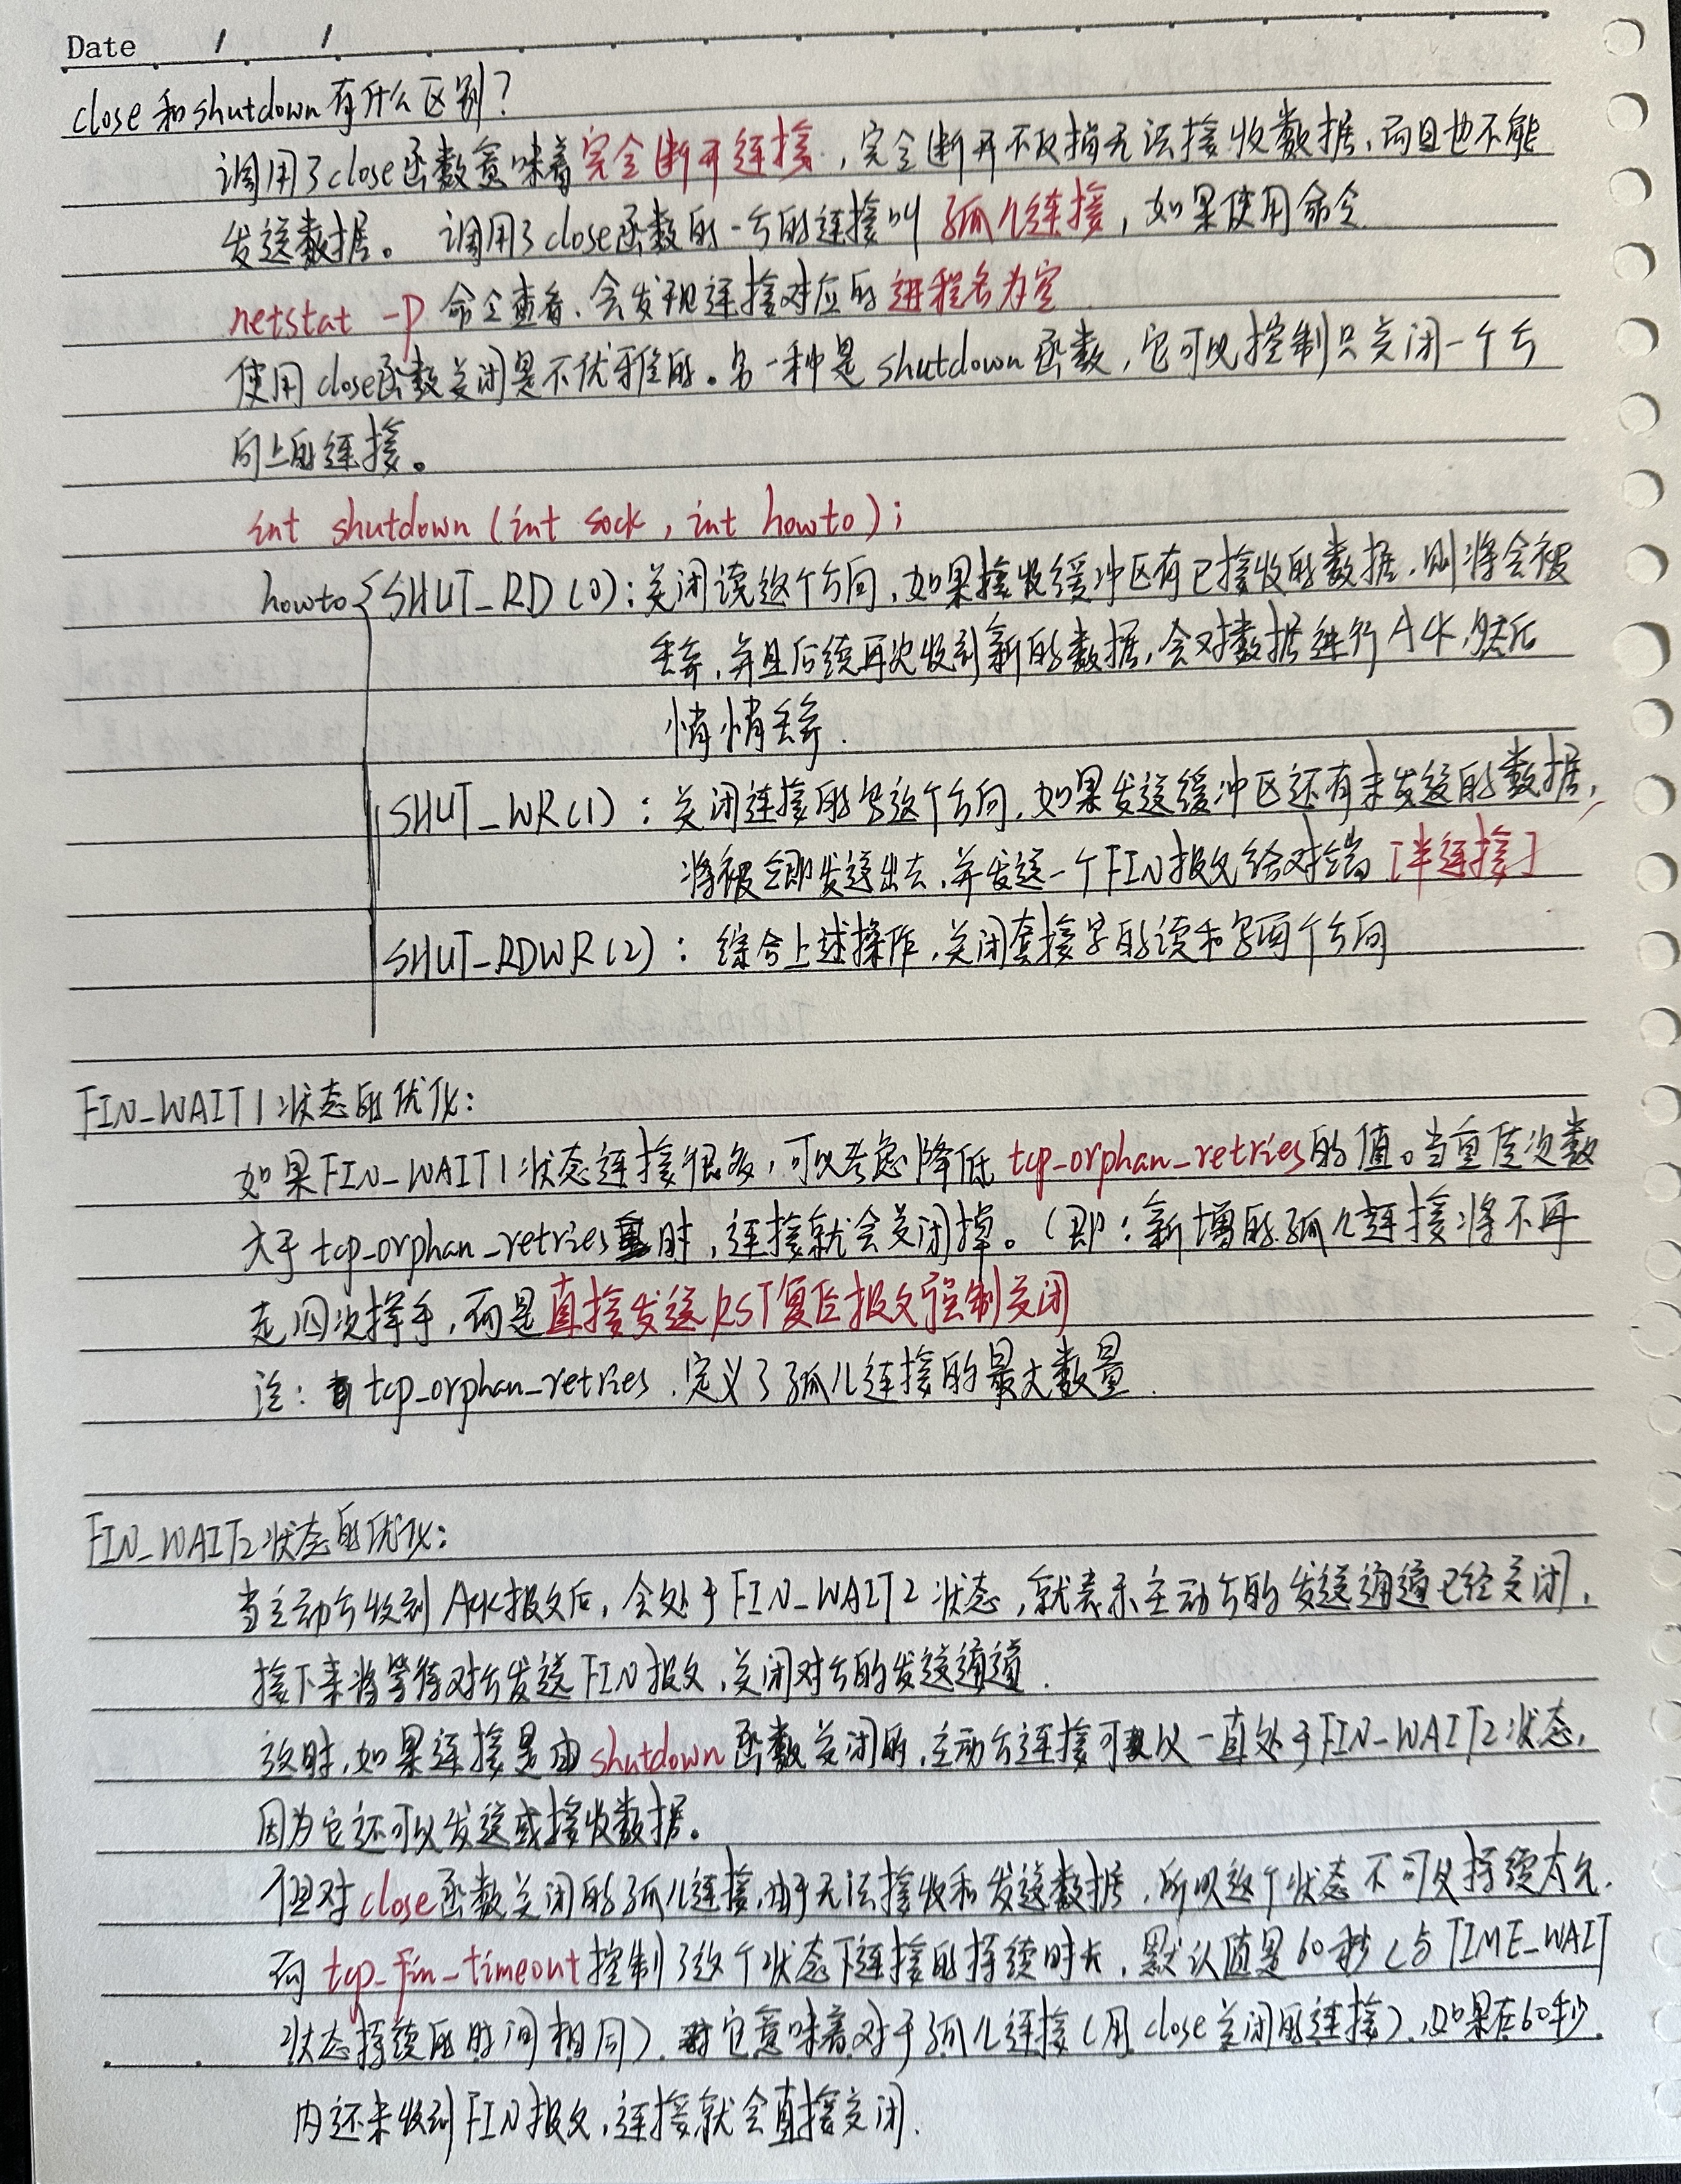 Date / /
close和shutdown有什么区别?
调用了close函数意味着完全断开连接,完全断开不仅指无法接收数据,而且也不能
发送数据。 调用了close函数的一方的连接叫 孤儿连接,如果使用命令
netstat -p 命令查看,会发现连接对应的进程名为空
使用close函数关闭是不优雅的。另一种是 shutdown函数,它可以控制只关闭一个方
向上的连接。
int shutdown (int sock, int howto);
howto{SHUT_RD(0):关闭读这个方向,如果接收缓冲区有已接收的数据,则将会被
丢弃,并且后续再次收到新的数据,会对数据进行ACK,然后
悄悄丢弃.
SHUT_WR(1):关闭连接的写这个方向,如果发送缓冲区还有未发送的数据,
将被立即发送出去,并发送一个FIN报文给对端[半连接]
SHUT_RDWR(2):综合上述操作,关闭套接字的读和写两个方向
FIN_WAIT1状态的优化:
如果FIN_WAIT1状态连接很多,可以考虑降低 tcp_orphan_retries的值。当重传次数
大于 tcp_orphan_retries时,连接就会关闭掉。(即:新增的孤儿连接将不再
走四次挥手,而是直接发送RST复位报文强制关闭
注: tcp_orphan_retries,定义了孤儿连接的最大数量.
FIN_WAIT2状态的优化:
当主动方收到Ack报文后,会处于FIN_WAIT2状态,就表示主动方的发送通道已经关闭,
接下来将等待对方发送FIN报文,关闭对方的发送通道.
这时,如果连接是由shutdown函数关闭的,主动方连接可以一直处于FIN_WAIT2状态,
因为它还可以发送或接收数据。
但对close函数关闭的孤儿连接,由于无法接收和发送数据,所以这个状态不可以持续太久,
而 tcp_fin_timeout控制了这个状态下连接的持续时长,默认值是60秒(与TIME_WAIT
状态持续的时间相同),它意味着对于孤儿连接(用close关闭的连接),如果在60秒
内还未收到FIN报文,连接就会直接关闭.